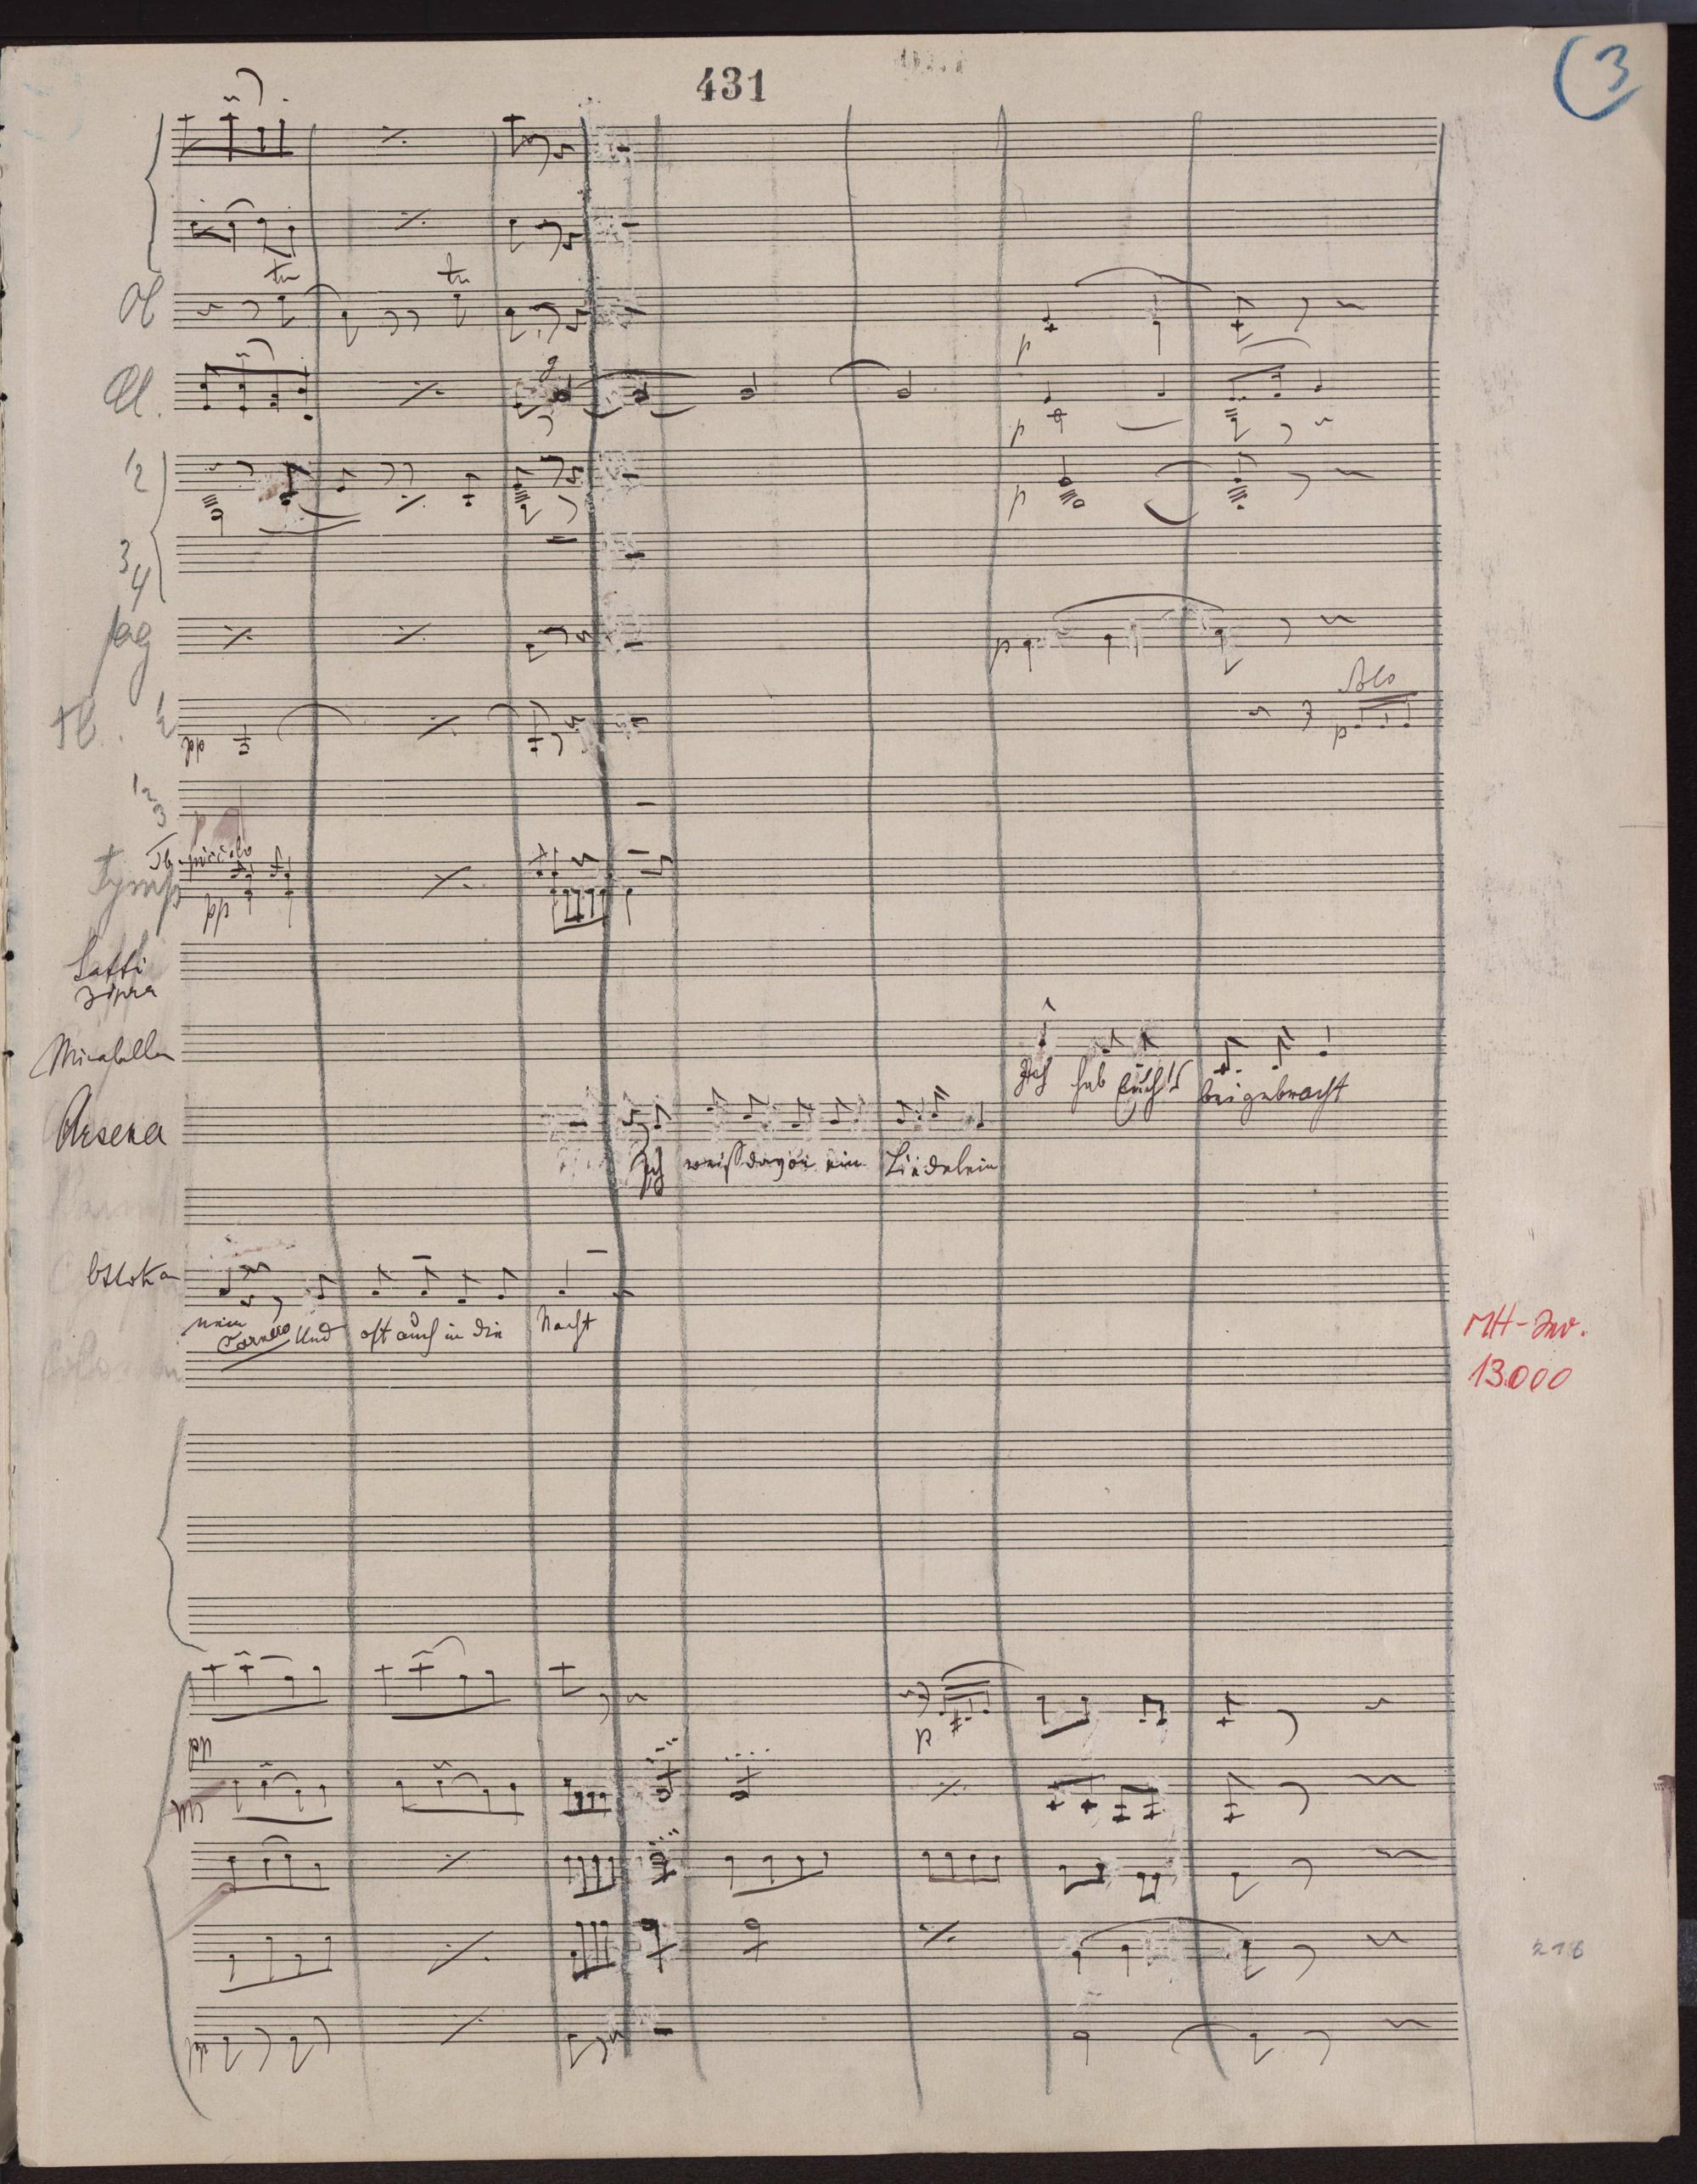 431
3
tr
tr
Ob
Cl.
p
p
1/2
p
3/4
fag
p
Solo
p
1 2 3
Tb. piccolo
Tymp
pp
Saffi
Zipra
Mirabella
Ich hab Euch's beigebracht
Arsena
Ich weiß davon ein Liedelein
Ottokar
nein und oft auch in die Nacht
MH-Inv.
13.000
p
216